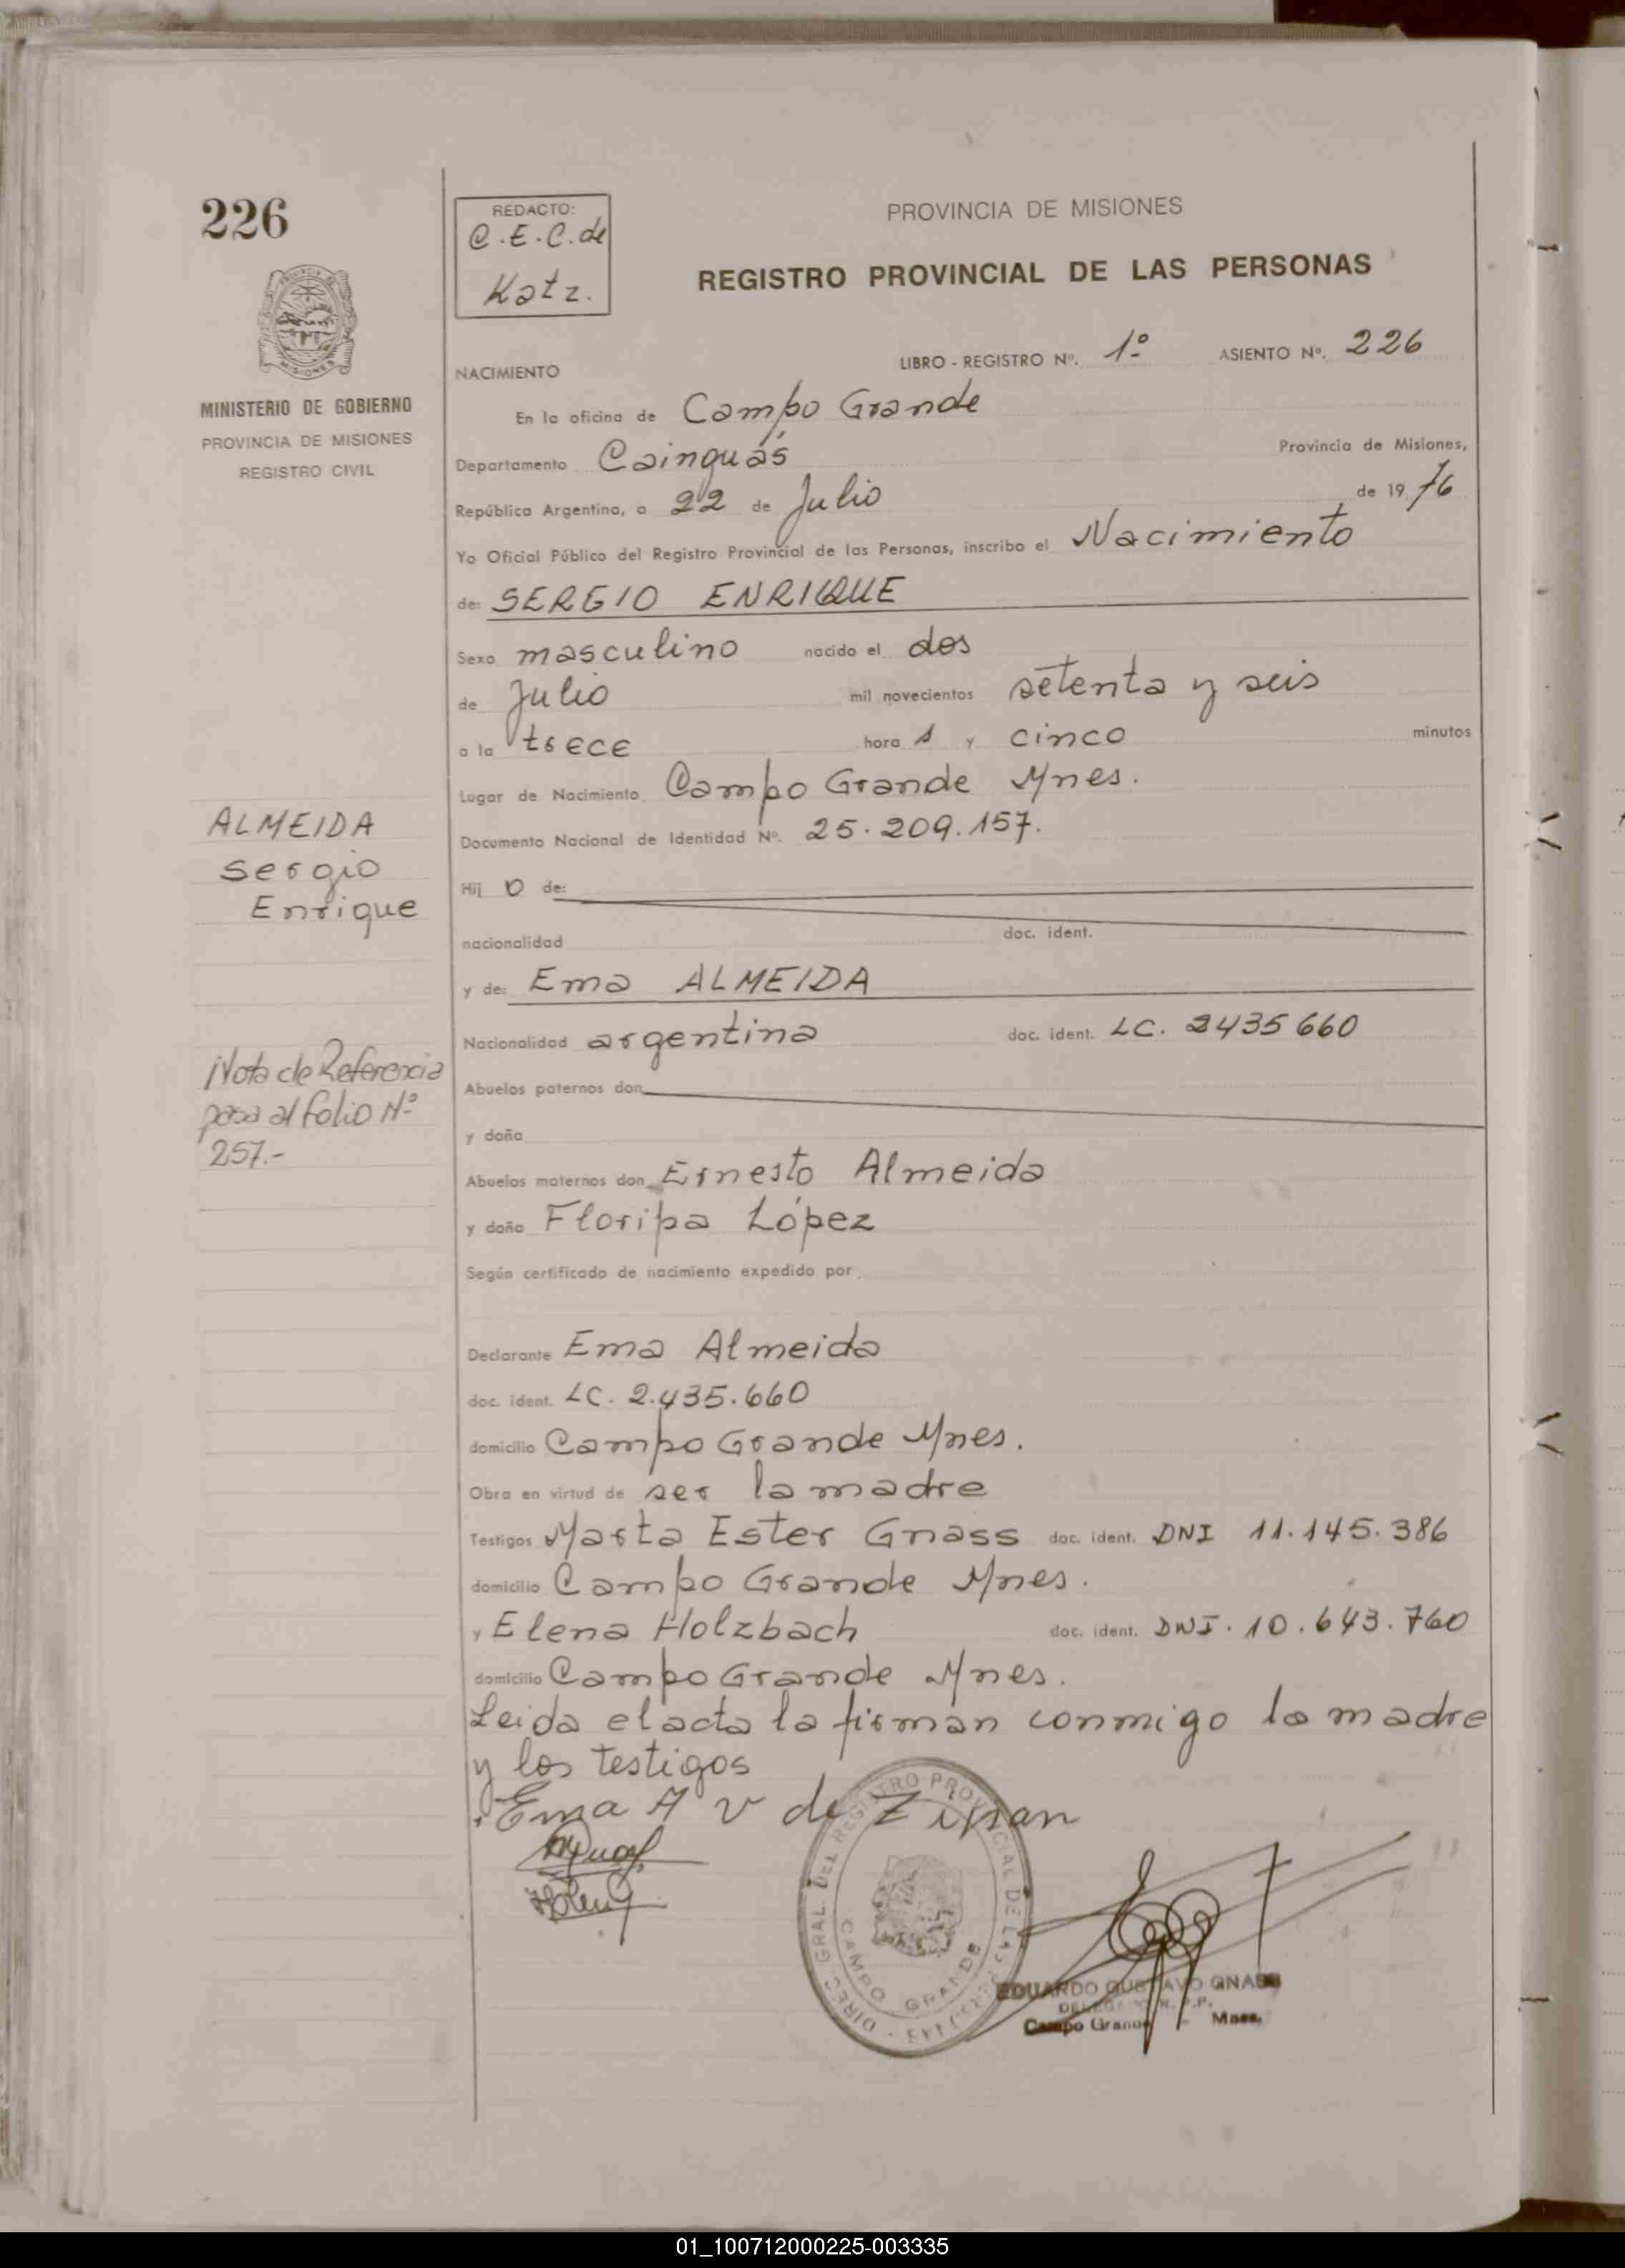 226
MINISTERIO DE GOBIERNO
PROVINCIA DE MISIONES
REGISTRO CIVIL
ALMEIDA
Sergio
Enrique
Nota de Referencia
pasa al folio Nº
257.-
REDACTO:
C.E.C. de
Katz.
PROVINCIA DE MISIONES
REGISTRO PROVINCIAL DE LAS PERSONAS
LIBRO - REGISTRO Nº. 1º ASIENTO Nº. 226
NACIMIENTO
En la oficina de Campo Grande
Departamento Cainguás Provincia de Misiones,
República Argentina, a 22 de Julio de 19 76
Yo Oficial Público del Registro Provincial de las Personas, inscribo el Nacimiento
de: SERGIO ENRIQUE
Sexo masculino nacido el dos
de Julio mil novecientos setenta y seis
a la trece hora s y cinco minutos
Lugar de Nacimiento Campo Grande Mnes.
Documento Nacional de Identidad Nº. 25.209.157.
Hij o de:
nacionalidad doc. ident.
y de: Ema ALMEIDA
Nacionalidad argentina doc. ident. LC. 2435660
Abuelos paternos don
y doña
Abuelos maternos don Ernesto Almeida
y doña Floripa López
Según certificado de nacimiento expedido por
Declarante Ema Almeida
doc. ident. LC. 2.435.660
domicilio Campo Grande Mnes.
Obra en virtud de ser la madre
Testigos Marta Ester Gnass doc. ident. DNI 11.145.386
domicilio Campo Grande Mnes.
y Elena Holzbach doc. ident. DNI. 10.643.760
domicilio Campo Grande Mnes.
Leida el acta la firman conmigo la madre
y los testigos
Ema A v de
DIREC. GRAL. DEL REGISTRO PROVINCIAL DE LAS PERSONAS
CAMPO GRANDE
EDUARDO GUSTAVO GNASS
Campo Grande - Mnes.
01_100712000225-003335